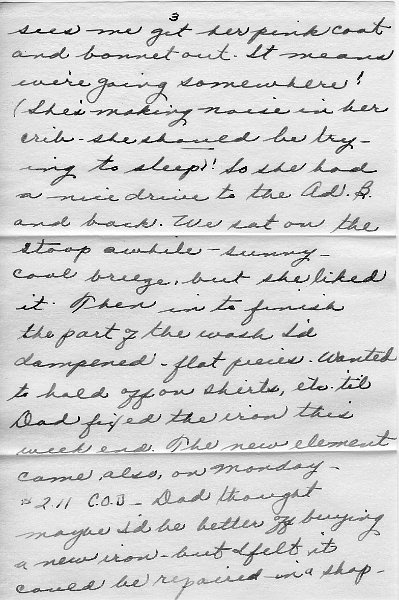 3
sees me get her pink coat
and bonnet out. It means
we're going somewhere!
(She's making noise in her
crib - she should be try-
ing to sleep)! So she had
a nice drive to the Ad. B.
and back. We sat on the
stoop awhile - sunny -
cool breeze, but she liked
it. Then in to finish
the part of the wash I'd
dampened - flat pieces. Wanted
to hold off on shirts, etc. 'til
Dad fixed the iron this
week end. The new element
came, also, on Monday -
$2.11 C.O.D - Dad thought
maybe I'd be better off buying
a new iron - but I felt it
could be repaired in a shop -